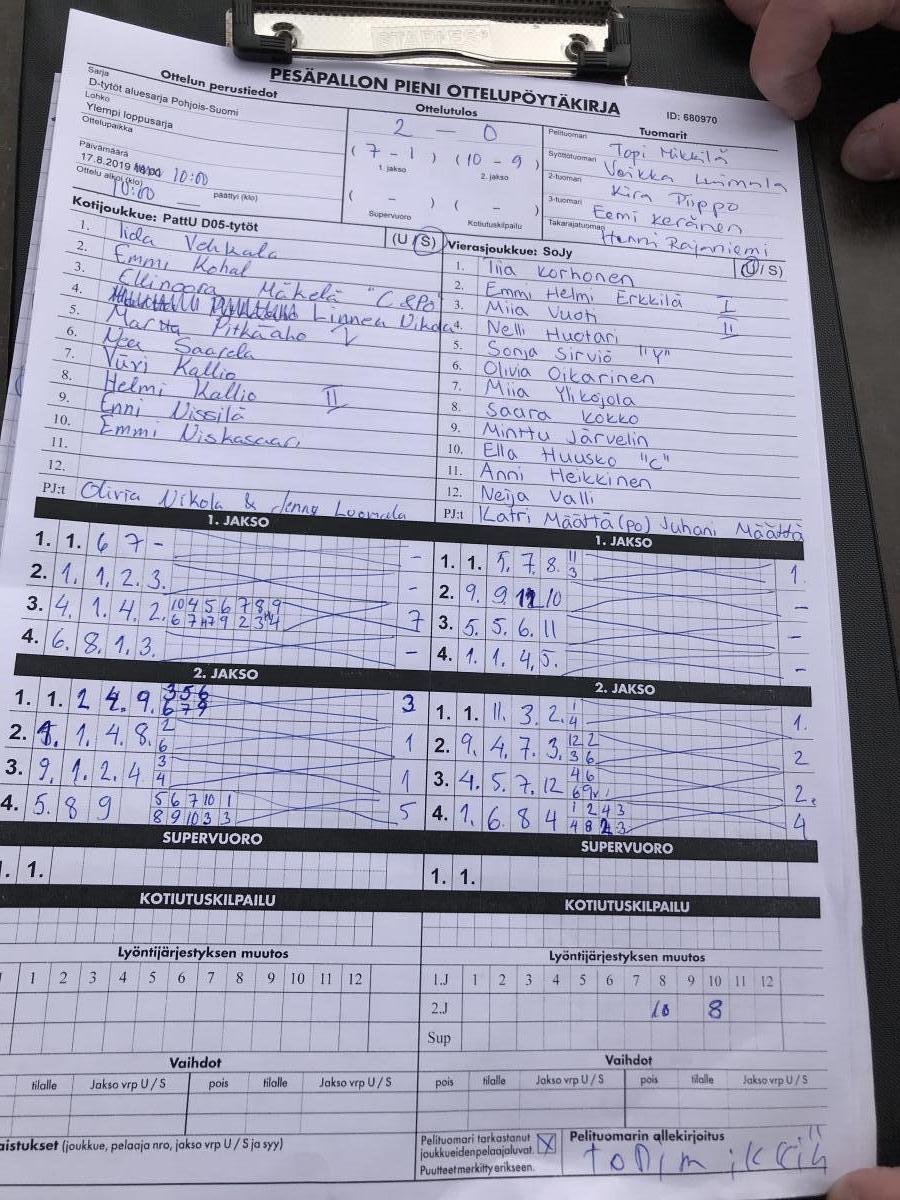 STAPLES
PESÄPALLON PIENI OTTELUPÖYTÄKIRJA
ID: 680970
Sarja
Ottelun perustiedot
D-tytöt aluesarja Pohjois-Suomi
Lohko
Ylempi loppusarja
Ottelupaikka
Päivämäärä
17.8.2019 10:00
Ottelu alkoi (klo) päättyi (klo)
10:00
Ottelutulos
2 – 0
( 7 – 1 ) ( 10 – 9 )
1. jakso 2. jakso
( – ) ( – )
Supervuoro Kotiutuskilpailu
Tuomarit
Pelituomari Topi Mikkilä
Syöttötuomari
2-tuoman Kira Piippo
3-tuoman Eemi Keränen
Takarajatuomari Henni Rajaniemi
Kotijoukkue: PattU D05-tytöt (U / S)
1. Iida
2. Emmi
3. Ellinoora Mäkelä "C &PO"
4. Linnea
5. Martta Pitkäaho I
6. Saarela
7. Kallio
8. Helmi Kallio II
9. Enni Nissilä
10. Emmi Niskasaari
11.
12.
PJ:t Olivia Nikola & Jenny
Vierasjoukkue: SoJy (U / S)
1. Tiia Korhonen
2. Emmi Helmi Erkkilä I
3. Miia Vuoti II
4. Nelli Huotari
5. Sonja Sirviö "Y"
6. Olivia Oikarinen
7. Miia Ylikojola
8. Saara Kokko
9. Minttu Järvelin
10. Ella Huusko "C"
11. Anni Heikkinen
12. Neija Valli
PJ:t Katri Määttä (po) Juhani Määttä
1. JAKSO
1. 1. 6 7 – –
2. 1. 1. 2. 3. –
3. 4. 1. 4. 2. 10 4 5 6 7 8 9 7
4. 6. 8. 1. 3. –
1. JAKSO
1. 1. 5. 7. 8. 11 1
3
2. 9. 9. 10 –
3. 5. 5. 6. 11 –
4. 1. 1. 4. 5. –
2. JAKSO
1. 1. 2 4. 9. 3 5 6 3
6 7 9
2. 1. 4. 8. 2 1
6
3. 9. 1. 2. 4 3 1
4
4. 5. 8 9 5 6 7 10 1 5
8 9 10 3 3
2. JAKSO
1. 1. 11. 3. 2. 1 1.
4
2. 9. 4. 7. 3. 12 2 2
3 6
3. 4. 5. 7. 12 4 6 2.
4. 1. 6. 8 4 1 2 4 3 4
4 8 2 3
SUPERVUORO
1. 1.
SUPERVUORO
1. 1.
KOTIUTUSKILPAILU
KOTIUTUSKILPAILU
Lyöntijärjestyksen muutos
1 2 3 4 5 6 7 8 9 10 11 12
Lyöntijärjestyksen muutos
1.J 1 2 3 4 5 6 7 8 9 10 11 12
2.J 10 8
Sup
Vaihdot
tilalle Jakso vrp U / S pois tilalle Jakso vrp U / S
Vaihdot
pois tilalle Jakso vrp U / S pois tilalle Jakso vrp U / S
aistukset (joukkue, pelaaja nro, jakso vrp U / S ja syy)
Pelituomari tarkastanut
joukkueidenpelaajaluvat. X
Puutteet merkitty erikseen.
Pelituomarin allekirjoitus